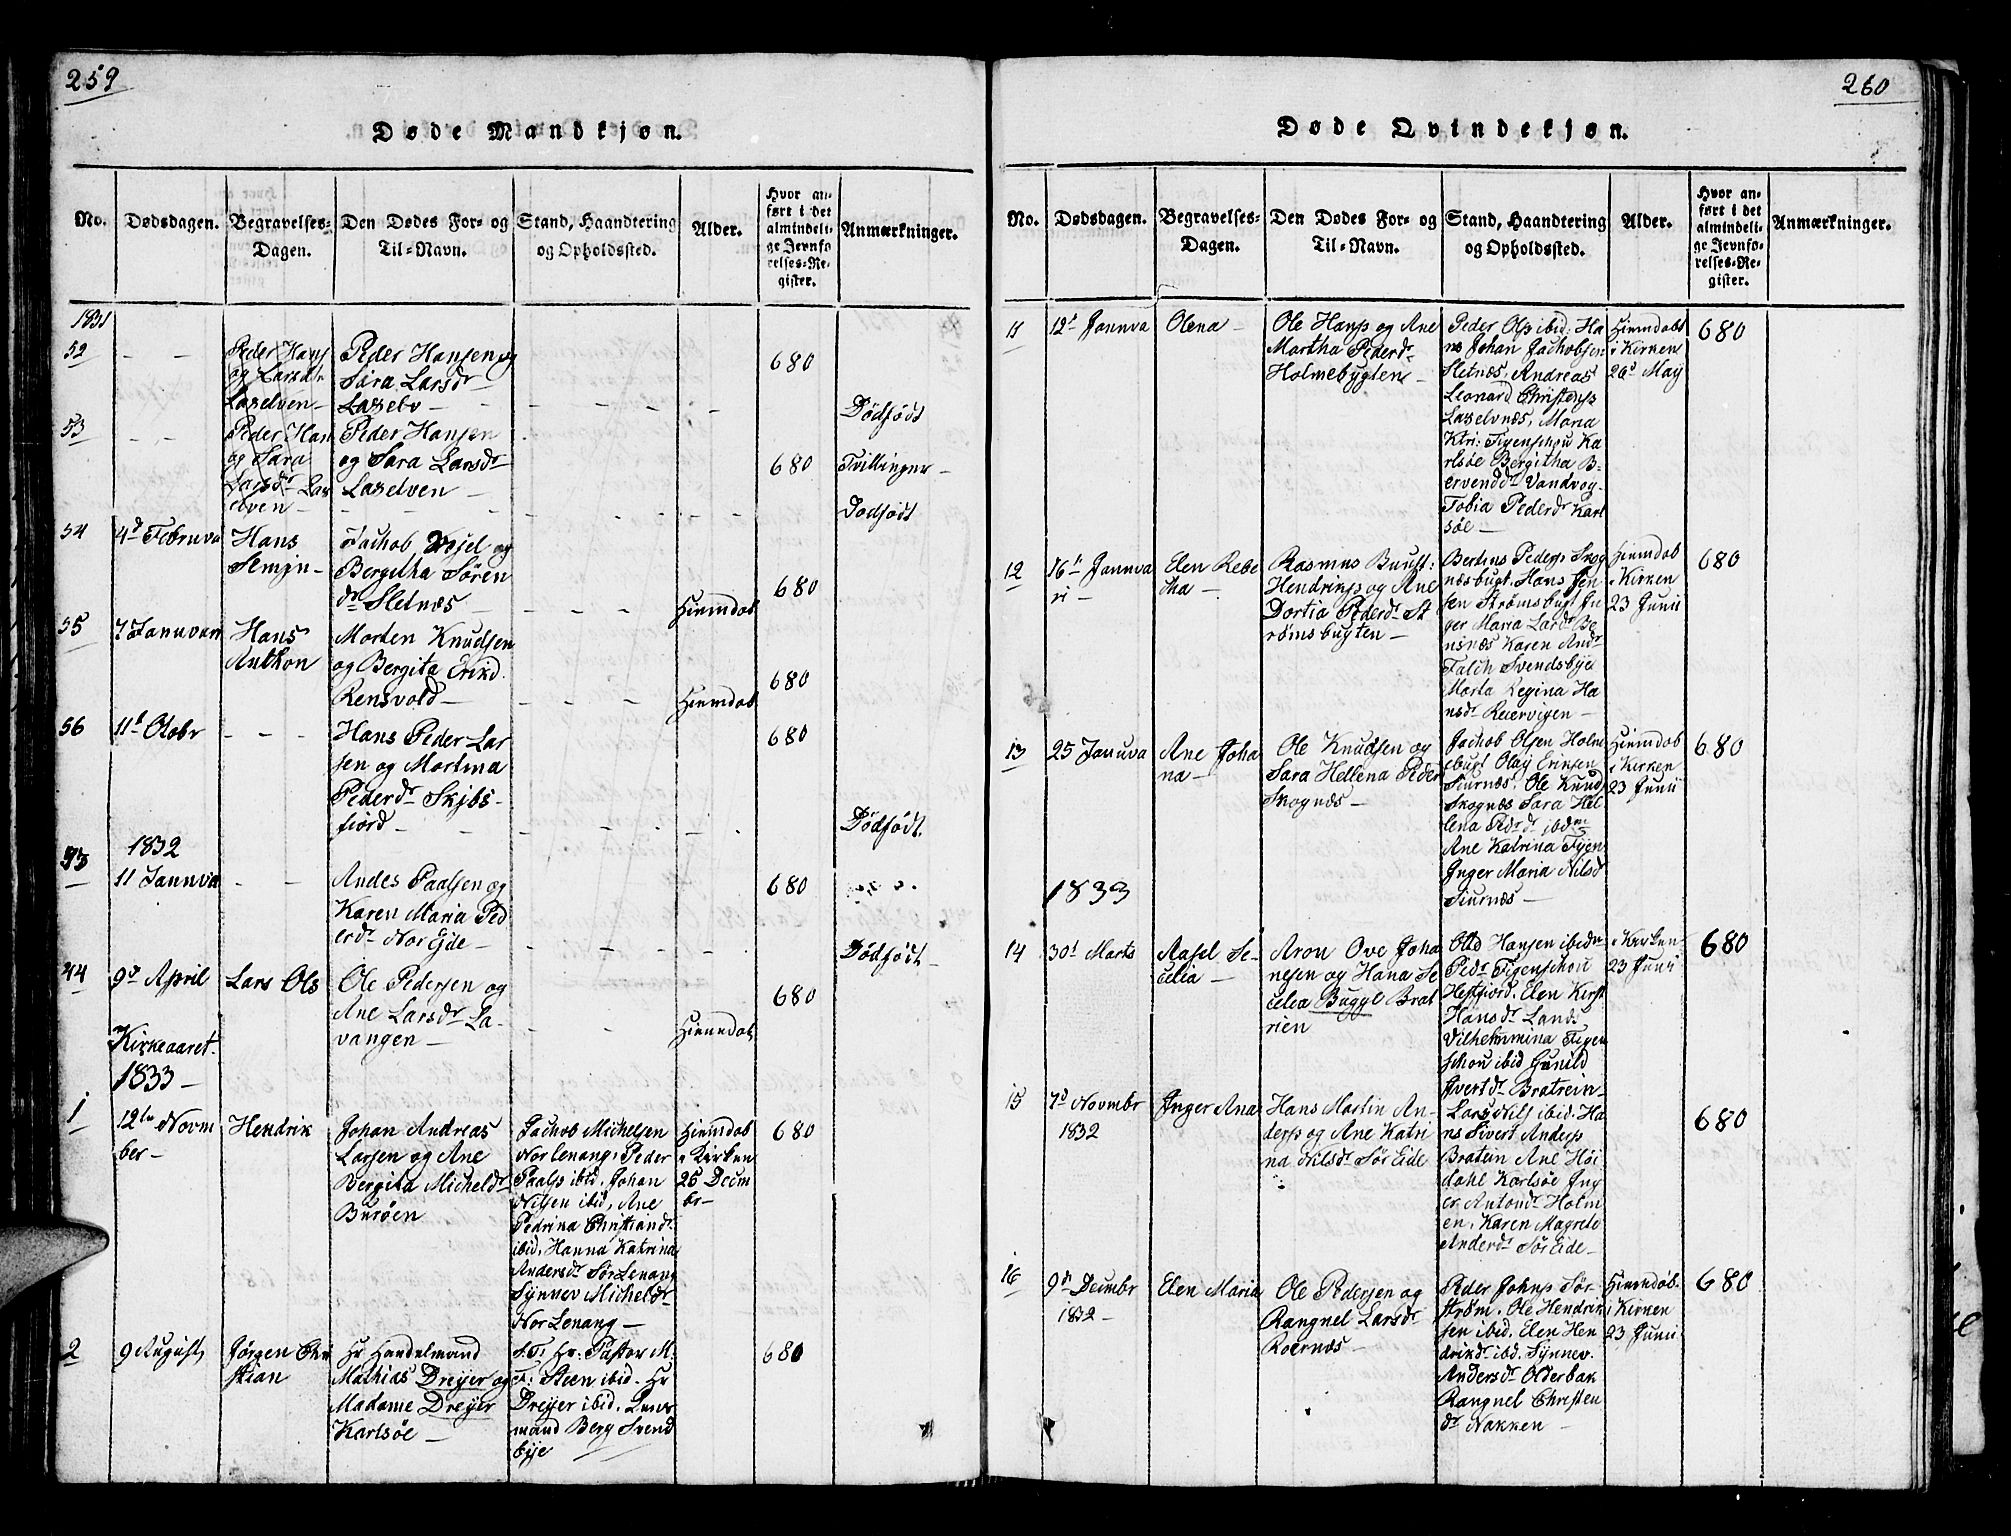 259
Døde Mandkjøn.
No.
Dødsdagen.
Begravelses-
Dagen.
Den Dødes For- og
Til-Navn.
Stand, Haandtering
og Opholdssted.
Alder.
Hvor an-
ført i det
almindeli-
ge Jevnfø-
relses-Re-
gister.
Anmærkninger.
1831
52
Peder Hans
og Larsdr
Laxelven
Peder Hansen og
Sara Larsdr
Laxelv
680
Dødfødt
53
Peder Han
og Sara
Larsdr Lax
elven
Peder Hansen
og Sara Larsdr
Laxelven
680
Tvillinger
Dødfødt
54
4d Februa
Hans
Jachob
og
Bergitha Søren
dr Sletnæs
680
Hiemdøb
55
7 Januari
Hans
Anthon
Morten Knudsen
og Bergita Erikd.
Rensvold
Hiemdøb
680
56
11t Otobr
Hans Peder Lar
sen og Martina
Pederdr Skjbs-
fiord
680
Dødfødt.
1832
11 Jannva
Andes Paalsen og
Karen Maria Ped
erdr Nor Ejde
680
Dødfødt
44
9d April
Lars Ols
Ole Pedersen og
Ane Larsdr La-
vangen
Hiemdob
680
Kirkeaaret
1833
1
12te Novm
ber
Hendrik
Johan Andreas
Larsen og Ane
Bergita Micheldr
Burøen
Jachob Michelsen
Nor Lenang. Peder
Paals ibid. Johan
Nilsen ibid, Ane
Pedrina Christiandr
ibid. Hanna Katrina
Andersdr Sør Lenang
Synnev Micheldr
Nor Lenang
Hiemdøb
i Kirken
26 Decem
br
680
2
9 August
Jørgen Chri
stian
Hr Handelmand
Mathias Dreyer og
Madame Dreyer
Karlsøe
S.T. Hr. Pastor M.
F. Steen ibid. Hr
Dreyer ibid. Lens
mand Berg Svend
bye
680
260
Døde Qvindekjøn.
No.
Dødsdagen.
Begravelses-
Dagen.
Den Dødes For- og
Til-Navn.
Stand, Haandtering
og Opholdssted.
Alder.
Hvor an-
ført i det
almindeli-
ge Jevnfø-
relses-Re-
gister.
Anmærkninger.
11
12t Jannva
Olena
Ole Hans og Ane
Martha Pederdr
Holmebugten
Peder Ols ibid. Ha
ns Johan Jachobsen
Sletnæs. Andreas
Leonard Christens
Laxelvnæs, Maria
Kir: Figenschou Ka
rlsøe Bergitha B-
ervenddr Vandvog
Tobia Pederdr Karl
søe
Hiemdøbt
i Kirken
26d May
680
12
16t Jannva
ri
Elen Rebe
tha
Rasmus Buust:
Hendriks og Ane
Dortia Pederdr St
rømsbugten
Bertius Peders Skog
næsbugt. Hans Jen
sen Strømsbugt In
ger Maria Lardr Be
nsnæs Karen Andr
Falch Svendsbye
Marta Regina Ha
nsdr Reiervigen
Hiemdob
i Kirken
23 Junii
680
13
25 Januva
Ane Joha
na
Ole Knudsen og
Sara Hellena Peder
Skognæs
Jachob Olsen Holm
ebugt Olay Eriksen
Siurnæs. Ole Knuds
Skognæs Sara Hel
lena Pedrdr ibdm
Ane Katrina Figen
Inger Maria Nilsd
Siurnæs
Hiemdob
i Kirken
23 Junii
680
1833
14
30t Marts
Aasel Se-
celia
Aron Ove Joha
nesen og Hana Se
celea Bugge Brat
rien
Otto Hansen ibidm
Pedr Figenschou
Hestfiord. Elen Kirst
Hansdr Lands
Vilhelmmina Figen
schou ibid Gunild
Ivertdr Bratrein
i Kirken
23 Junii
680
15
7d Novmbr
1832
Inger Ana
Hans Martin An-
ders og Ane Katri
na Nilsdr Sør Eide
Lars Nils ibid. Ha
ns Sivert Anders
Bratein Ane Høi
dahl Karlsøe Ing
er Antondr Holm
en. Karen Magrete
Anderdr Sør Eide
680
16
9de Decmbr
1832
Elen Maria
Ole Pedersen og
Rangnel Larsdr
Roernæs
Peder Johns Sør
strøm. Ole Hendrik
sen ibid. Elen Hen
drikdr ibd. Synnev
Andersdr Olderbak
Rangnel Christen
dr Nakken
Hiemdøb.
i Kirken
23 Junii
680